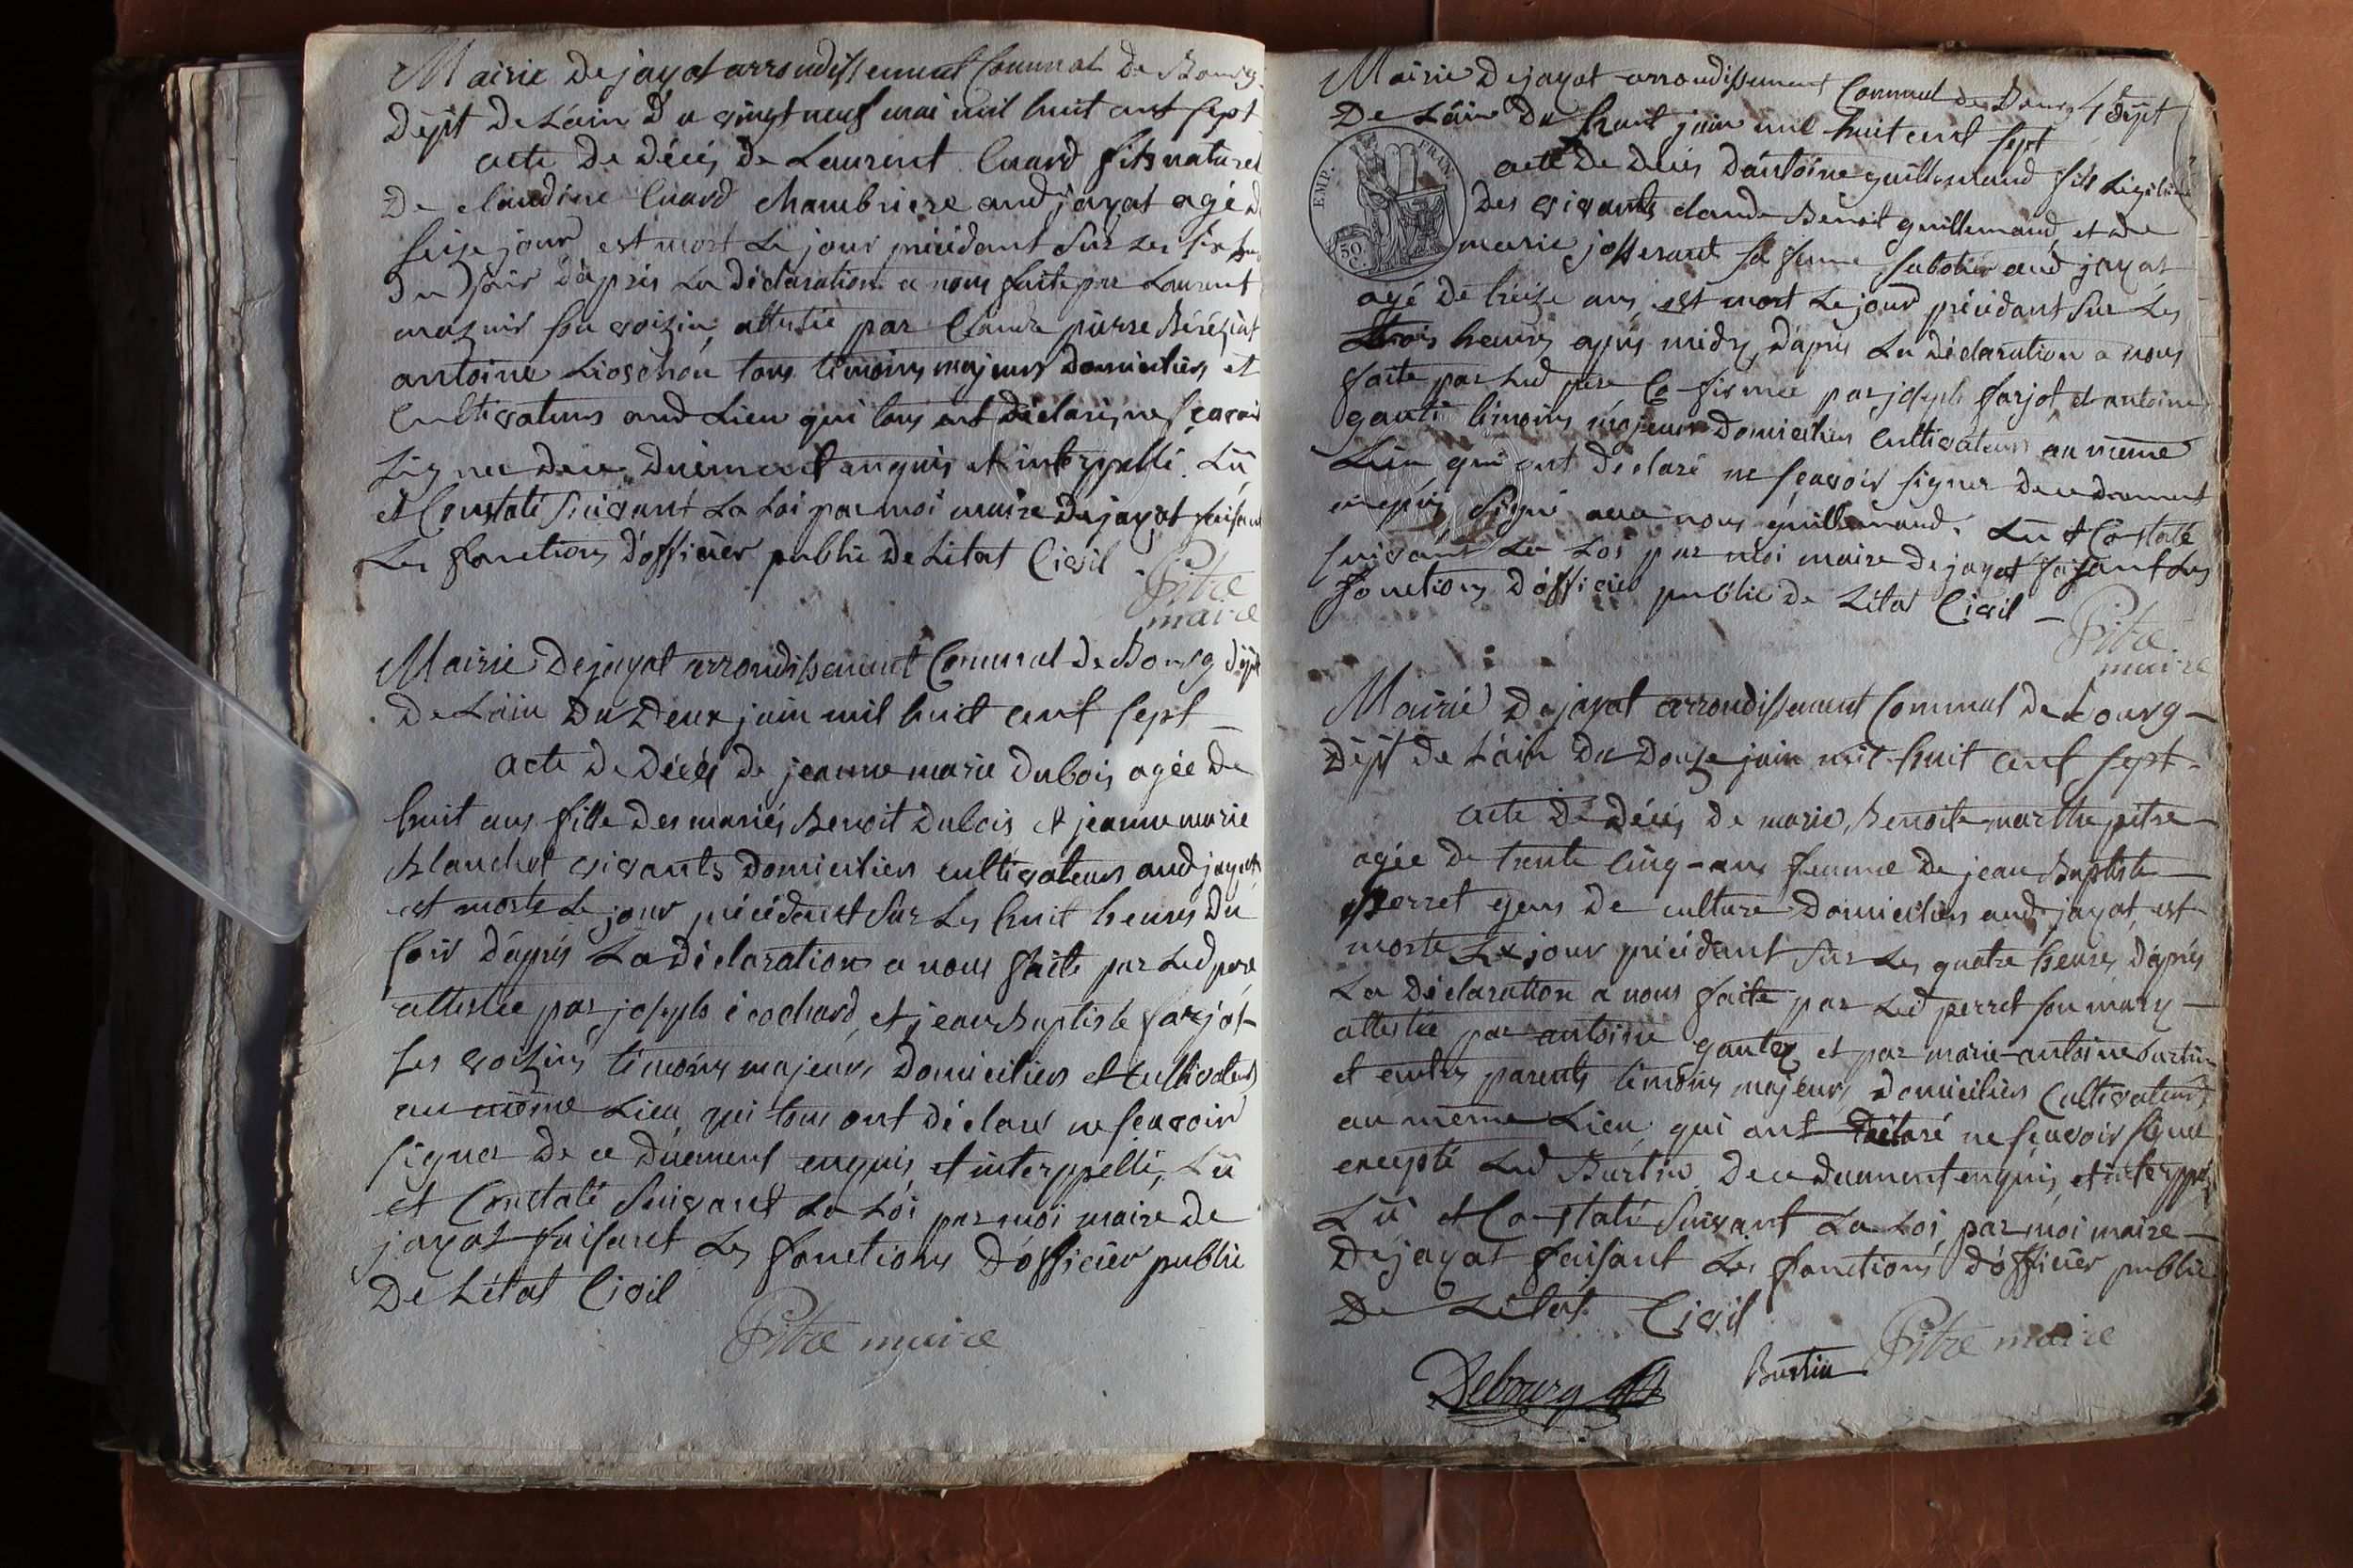 Mairie de jayat arrondissement Communal de Bourg
dépt de L'ain du vingt neuf mai mil huit cent sept
acte de décés de Laurent Cuard fils naturel
de claudine Cuard chambriere aud jayat agé de
seize jour est mort le jour précédant sur les six
du soir d'aprés la déclaration a nous faite par Laurent
son voizin, attestée par Claude pierre Béréziat
antoine tous témoins majeurs domiciliés et
cultivateurs aud Lieu qui tous ont déclaré ne sçavoir
signer de ce duement enquis et interppellé. Lû
et Constaté suivant La Loi par moi maire de jayat faisant
Les fonctions d'officier public de L'état Civil
Pitre
maire
Mairie de jayat arrondissement Communal de Bourg dépt
de L'ain du deux juin mil huit cent sept
acte de décés de jeanne marie dubois agée de
huit ans fille des mariés Benoit dubois et jeanne marie
Blanchet vivants domiciliés cultivateurs aud jayat
est morte Le jour précédant sur Les huit heures du
soir d'aprés La déclaration a nous faite par Led pere
attestée par joseph cochard et jean Baptiste farjot
ses voizins témoins majeurs domiciliés et cultivateurs
au même Lieu qui tous ont déclaré ne sçavoir
signer de ce duement enquis et interppellé, Lû
et Constaté suivant La Loi par moi maire de
jayat faisant Les fonctions d'officier public
de L'état Civil
Pitre maire
Mairie de jayat arrondissement Communal de Bourg dépt
de L'ain du huit juin mil huit cent sept
EMP. FRAN.
acte de décés d'antoine guillemaud fils Légitime
des vivants claude Benoit guillemaud et de
50 C.
marie josserant sa femme sabotier aud jayat
agé de treize ans, est mort Le jour précédant sur Les
trois heures aprés midy, d'aprés La déclaration a nous
faite par Led pere Confirmée par joseph farjot et antoine
gauti témoins majeurs domiciliés cultivateurs au même
Lieu qui ont déclaré ne sçavoir signer de ce duement
enquis signé avec nous guillemaud. Lû et Constaté
suivant La Loi par moi maire de jayat faisant Les
fonctions d'officier public de L'état Civil
Pitre
maire
Mairie de jayat arrondissement Communal de Bourg
dépt de L'ain du douze juin mil huit cent sept
acte de décés de marie Benoite marthe pitre
agée de trente cinq ans femme de jean Baptiste
perret gens de culture domiciliés aud jayat, est
morte Le jour précédant sur Les quatre heures, d'aprés
La déclaration a nous faite par Led perret son mary
attestée par antoine gautey et par marie antoine burtin
et parents témoins majeurs domiciliés cultivateurs
au même Lieu qui ont déclaré ne sçavoir signer
excepté Led Burtin de ce duement enquis, et interppellé
Lû et Constaté suivant La Loi par moi maire
de jayat faisant Les fonctions d'officier public
de L'état Civil
Pitre maire
Debourg Burtin